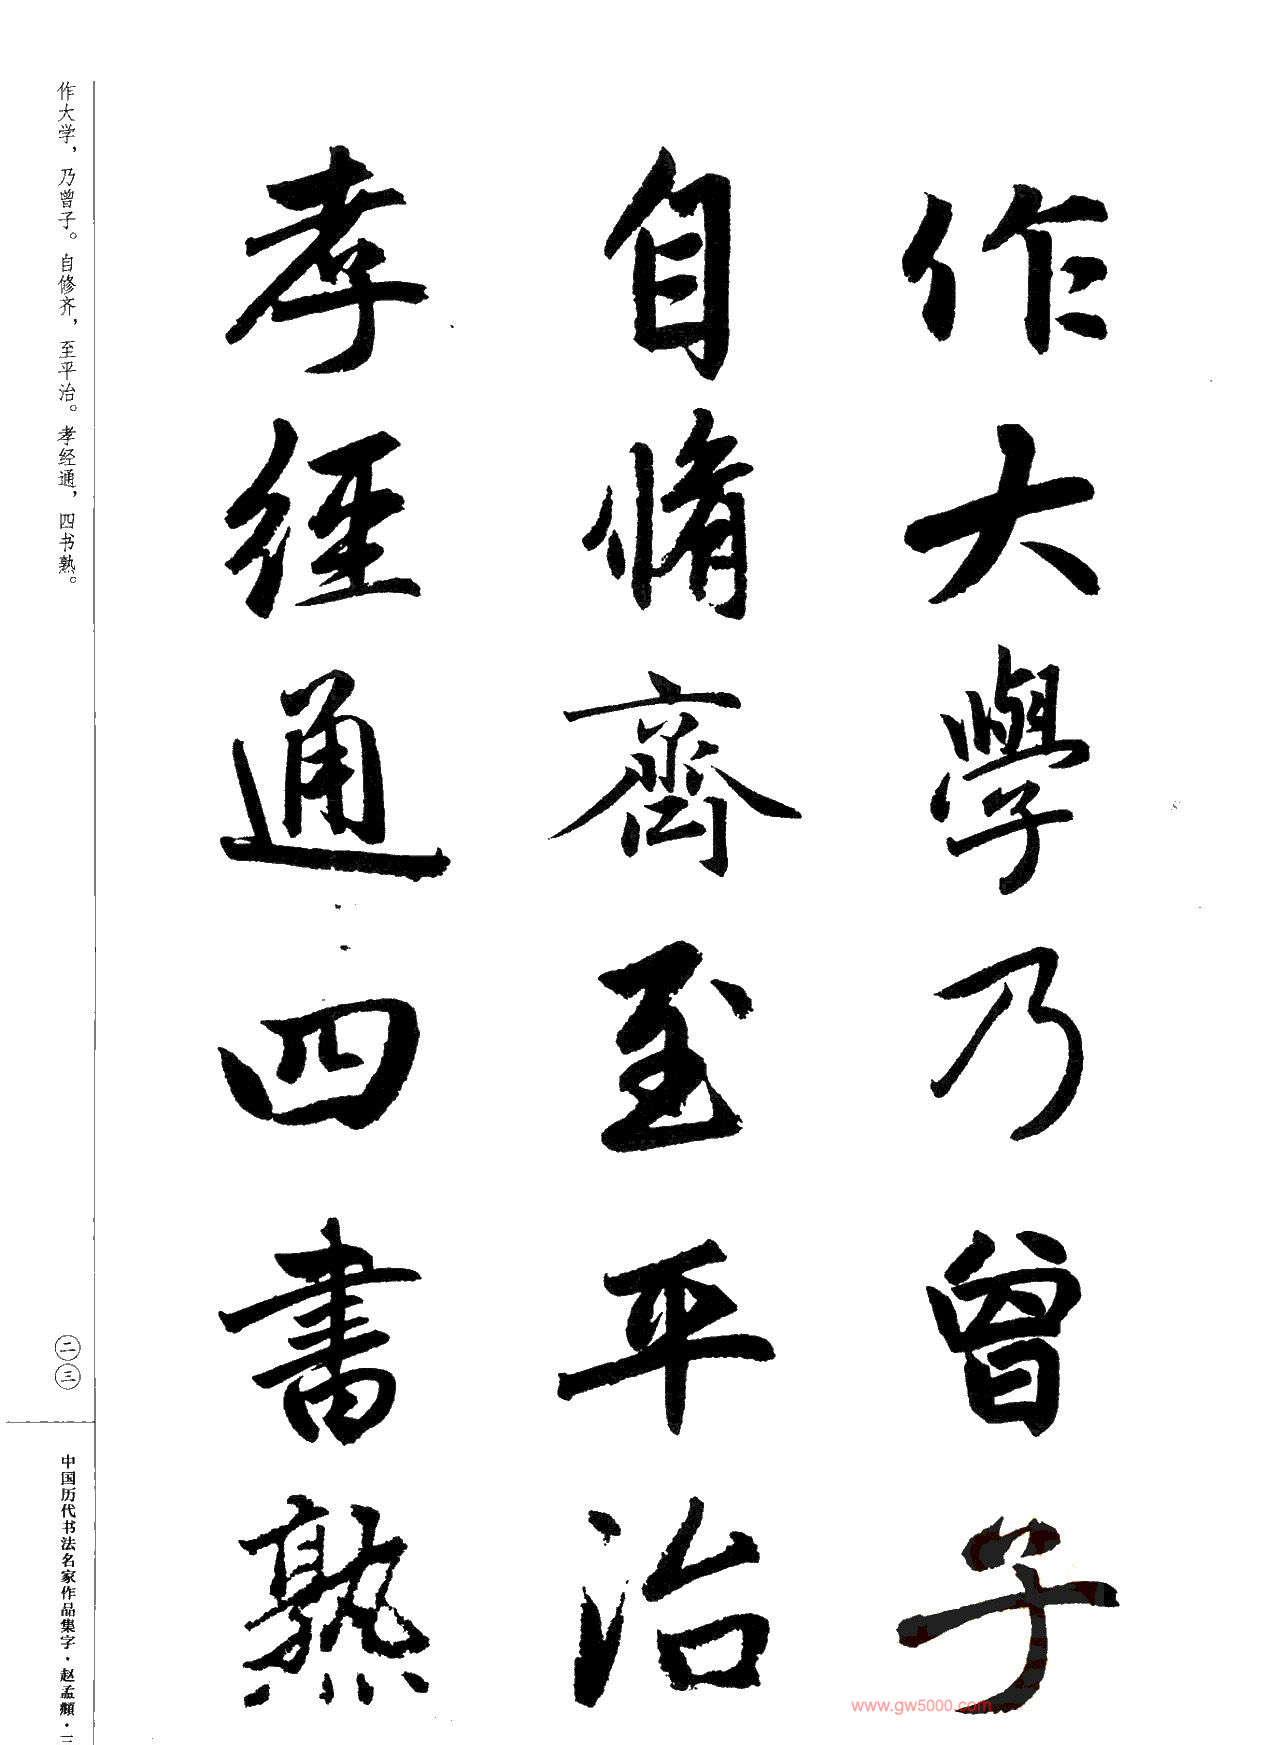 作大學乃曾子
自脩齊至平治
孝經通四書熟
作大学，乃曾子。自修齐，至平治。孝经通，四书熟。
二三
中国历代书法名家作品集字·赵孟頫·三
www.gw5000.com